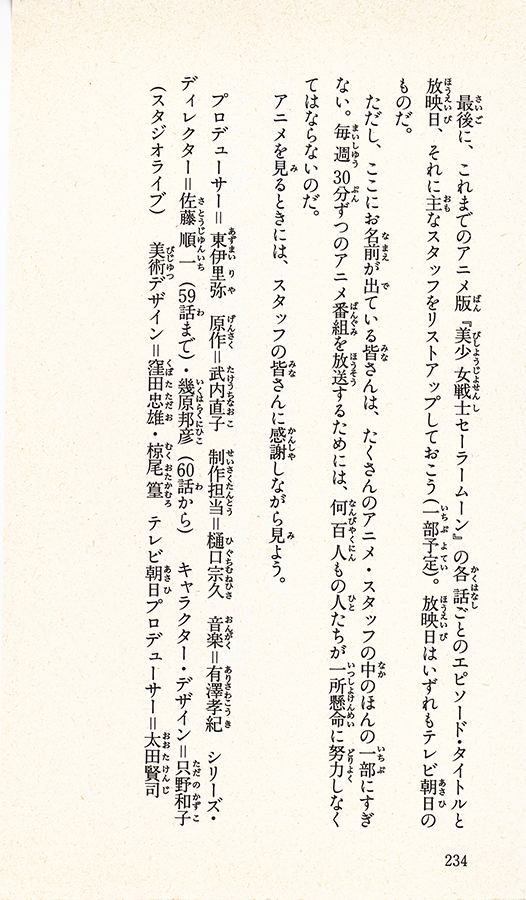 最後に、これまでのアニメ版『美少女戦士セーラームーン』の各話ごとのエピソード・タイトルと
放映日、それに主なスタッフをリストアップしておこう（一部予定）。放映日はいずれもテレビ朝日の
ものだ。
ただし、ここにお名前が出ている皆さんは、たくさんのアニメ・スタッフの中のほんの一部にすぎ
ない。毎週30分ずつのアニメ番組を放送するためには、何百人もの人たちが一所懸命に努力しなく
てはならないのだ。
アニメを見るときには、スタッフの皆さんに感謝しながら見よう。
プロデューサー＝東伊里弥　原作＝武内直子　制作担当＝樋口宗久　音楽＝有澤孝紀　シリーズ・
ディレクター＝佐藤順一（59話まで）・幾原邦彦（60話から）　キャラクター・デザイン＝只野和子
（スタジオライブ）　美術デザイン＝窪田忠雄・椋尾篁　テレビ朝日プロデューサー＝太田賢司
234